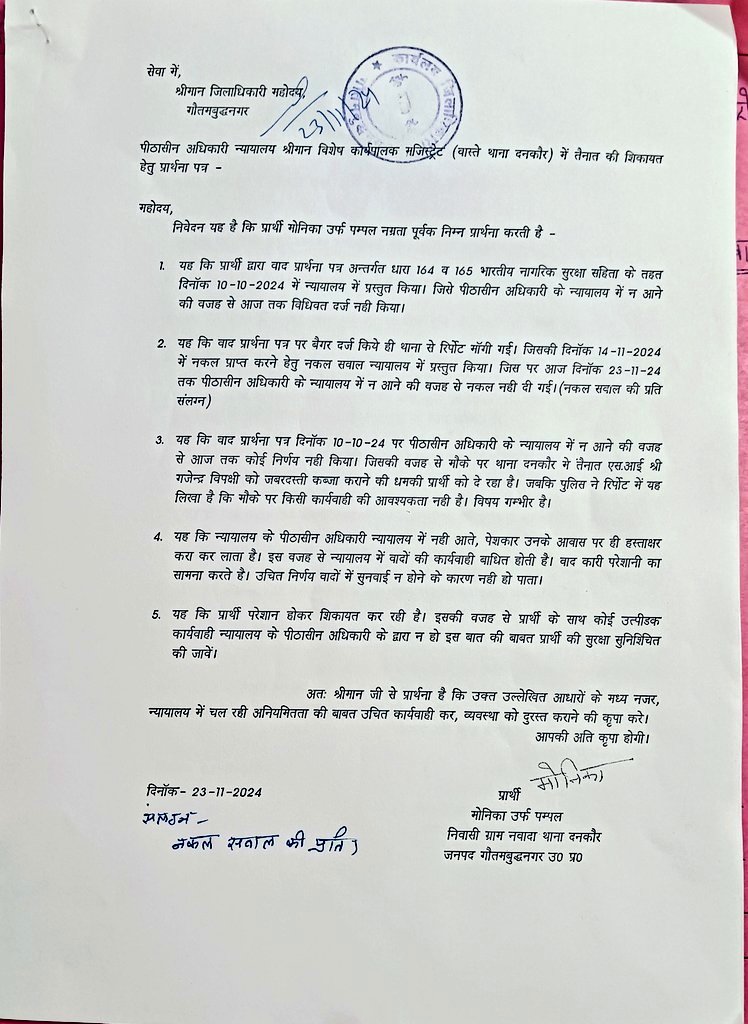 सेवा में,
श्रीगान जिलाधिकारी गहोदय,
गौतमबुद्धनगर
23/11/24
कार्यलय जिलाधिकारी
पीठासीन अधिकारी न्यायालय श्रीगान विशेष कार्यपालक गजिस्ट्रेट (वास्ते थाना दनकौर) में तैनात की शिकायत
हेतु प्रार्थना पत्र -
गहोदय,
निवेदन यह है कि प्रार्थी मोनिका उर्फ पम्पल नम्रता पूर्वक निम्न प्रार्थना करती है -
1. यह कि प्रार्थी द्वारा वाद प्रार्थना पत्र अन्तर्गत धारा 164 व 165 भारतीय नागरिक सुरक्षा सहिता के तहत
दिनॉक 10-10-2024 में न्यायालय में प्रस्तुत किया। जिसे पीठासीन अधिकारी के न्यायालय में न आने
की वजह से आज तक विधिवत दर्ज नही किया।
2. यह कि वाद प्रार्थना पत्र पर बैगर दर्ज किये ही थाना से रिर्पोट मॉगी गई। जिसकी दिनॉक 14-11-2024
में नकल प्राप्त करने हेतु नकल सवाल न्यायालय में प्रस्तुत किया। जिस पर आज दिनॉक 23-11-24
तक पीठासीन अधिकारी के न्यायालय में न आने की वजह से नकल नही दी गई।(नकल सवाल की प्रति
संलग्न)
3. यह कि वाद प्रार्थना पत्र दिनॉक 10-10-24 पर पीठासीन अधिकारी के न्यायालय में न आने की वजह
से आज तक कोई निर्णय नही किया। जिसकी वजह से मौके पर थाना दनकौर गे तैनात एस.आई श्री
गजेन्द्र विपक्षी को जबरदस्ती कब्जा कराने की धमकी प्रार्थी को दे रहा है। जबकि पुलिस ने रिर्पोट में यह
लिखा है कि मौके पर किसी कार्यवाही की आवश्यकता नही है। विषय गम्भीर है।
4. यह कि न्यायालय के पीठासीन अधिकारी न्यायालय में नही आते, पेशकार उनके आवास पर ही हस्ताक्षर
करा कर लाता है। इस वजह से न्यायालय में वादों की कार्यवाही बाधित होती है। वाद कारी परेशानी का
सामना करते है। उचित निर्णय वादों में सुनवाई न होने के कारण नही हो पाता।
5. यह कि प्रार्थी परेशान होकर शिकायत कर रही है। इसकी वजह से प्रार्थी के साथ कोई उत्पीडक
कार्यवाही न्यायालय के पीठासीन अधिकारी के द्वारा न हो इस बात की बाबत प्रार्थी की सुरक्षा सुनिश्चित
की जावें।
अतः श्रीगान जी से प्रार्थना है कि उक्त उल्लेखित आधारों के मध्य नजर,
न्यायालय में चल रही अनियमितता की बाबत उचित कार्यवाही कर, व्यवस्था को दुरस्त कराने की कृपा करे।
आपकी अति कृपा होगी।
मोनिका
दिनॉक- 23-11-2024
प्रार्थी
संलग्न-
मोनिका उर्फ पम्पल
नकल सवाल की प्रति।
निवासी ग्राम नवादा थाना दनकौर
जनपद गौतमबुद्धनगर उ0 प्र0